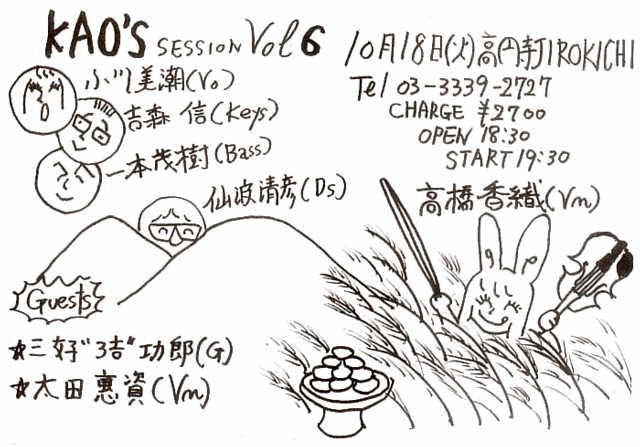 KAO'S SESSION Vol 6
10月18日(火)高円寺JIROKICHI
Tel 03-3339-2727
CHARGE ¥2700
OPEN 18:30
START 19:30
小川美潮(Vo)
吉森 信(Keys)
一本茂樹(Bass)
仙波清彦(Ds)
高橋香織(Vn)
Guests
★三好"3吉"功郎(G)
★太田惠資(Vn)